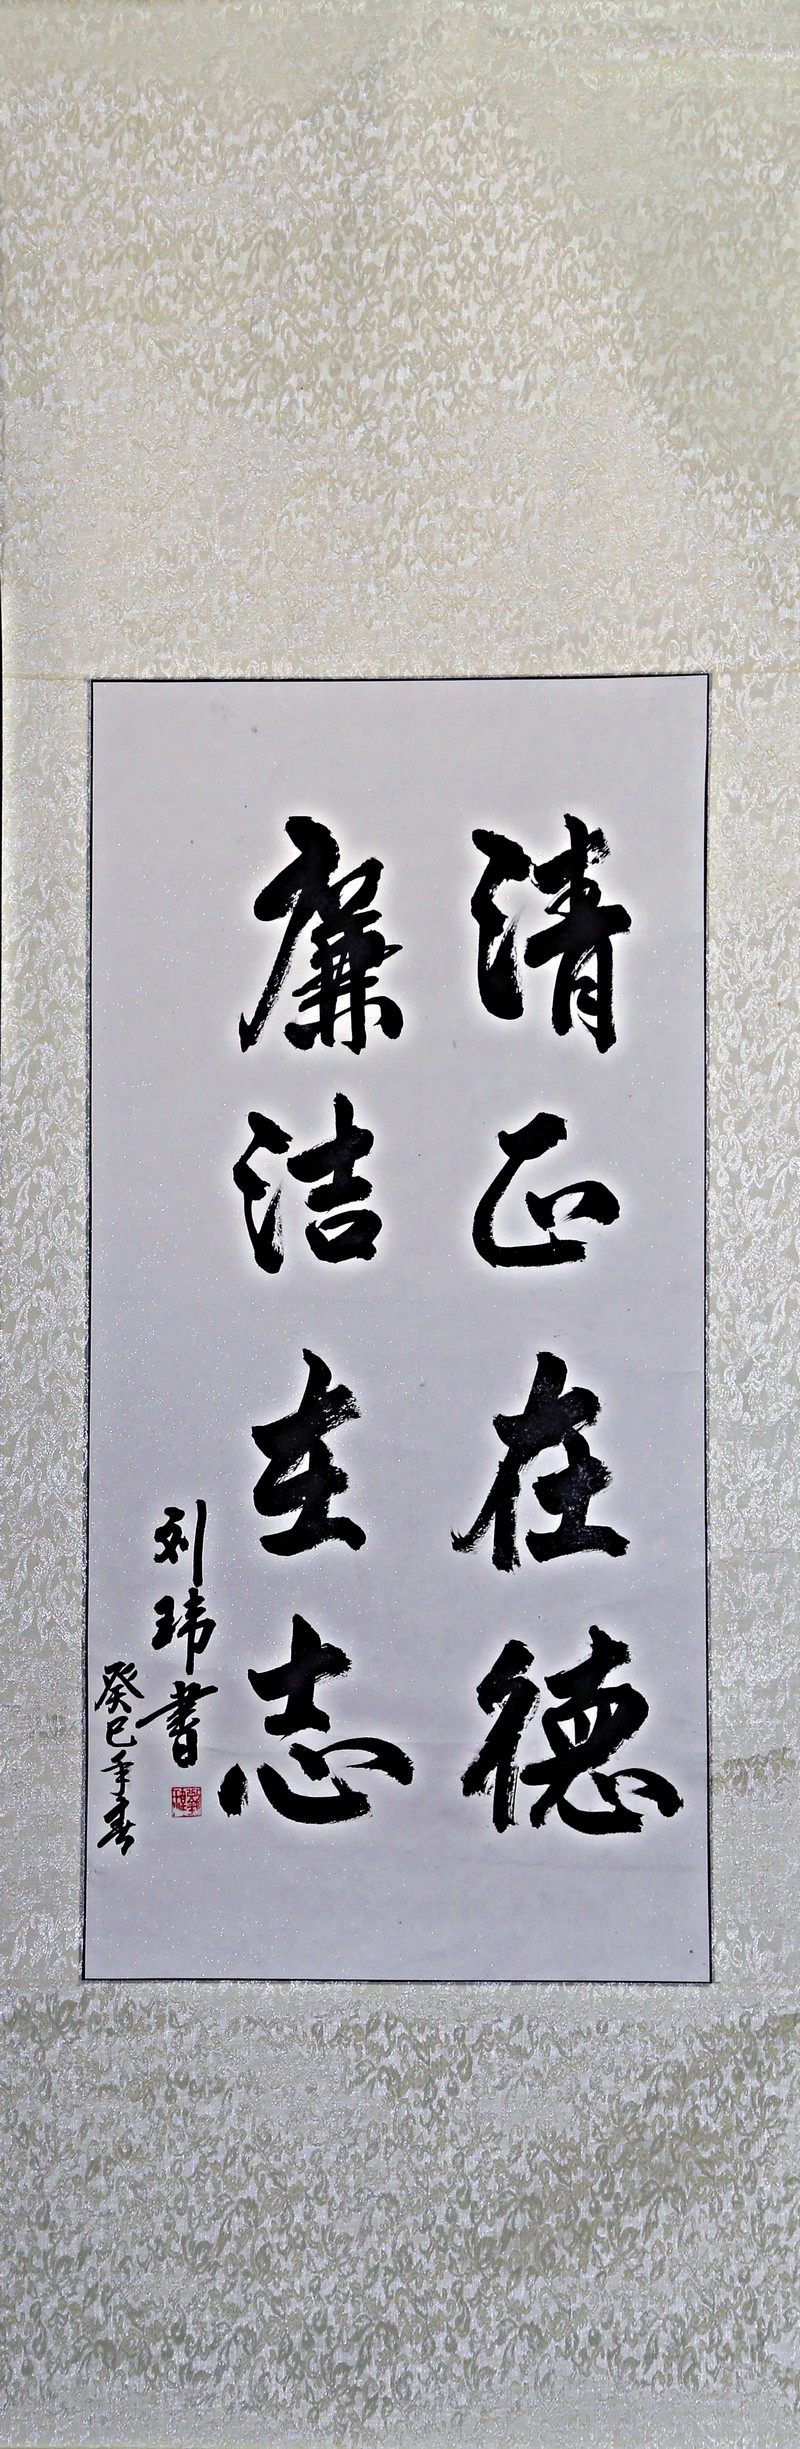 清正在德
廉洁在志
刘玮书
癸巳年春